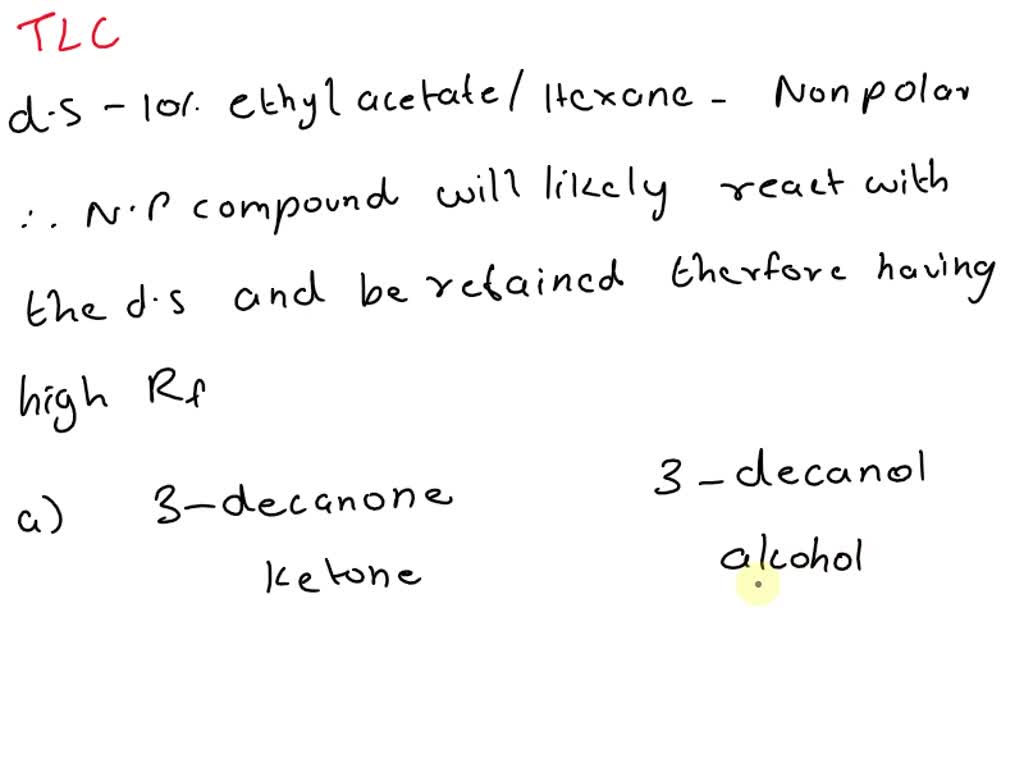 TLC
d.s - 10%. ethyl acetate/Hexane - Nonpolar
∴ N.P compound will likely react with
the d.s and be retained therfore having
high Rf
a) 3-decanone 3-decanol
ketone alcohol